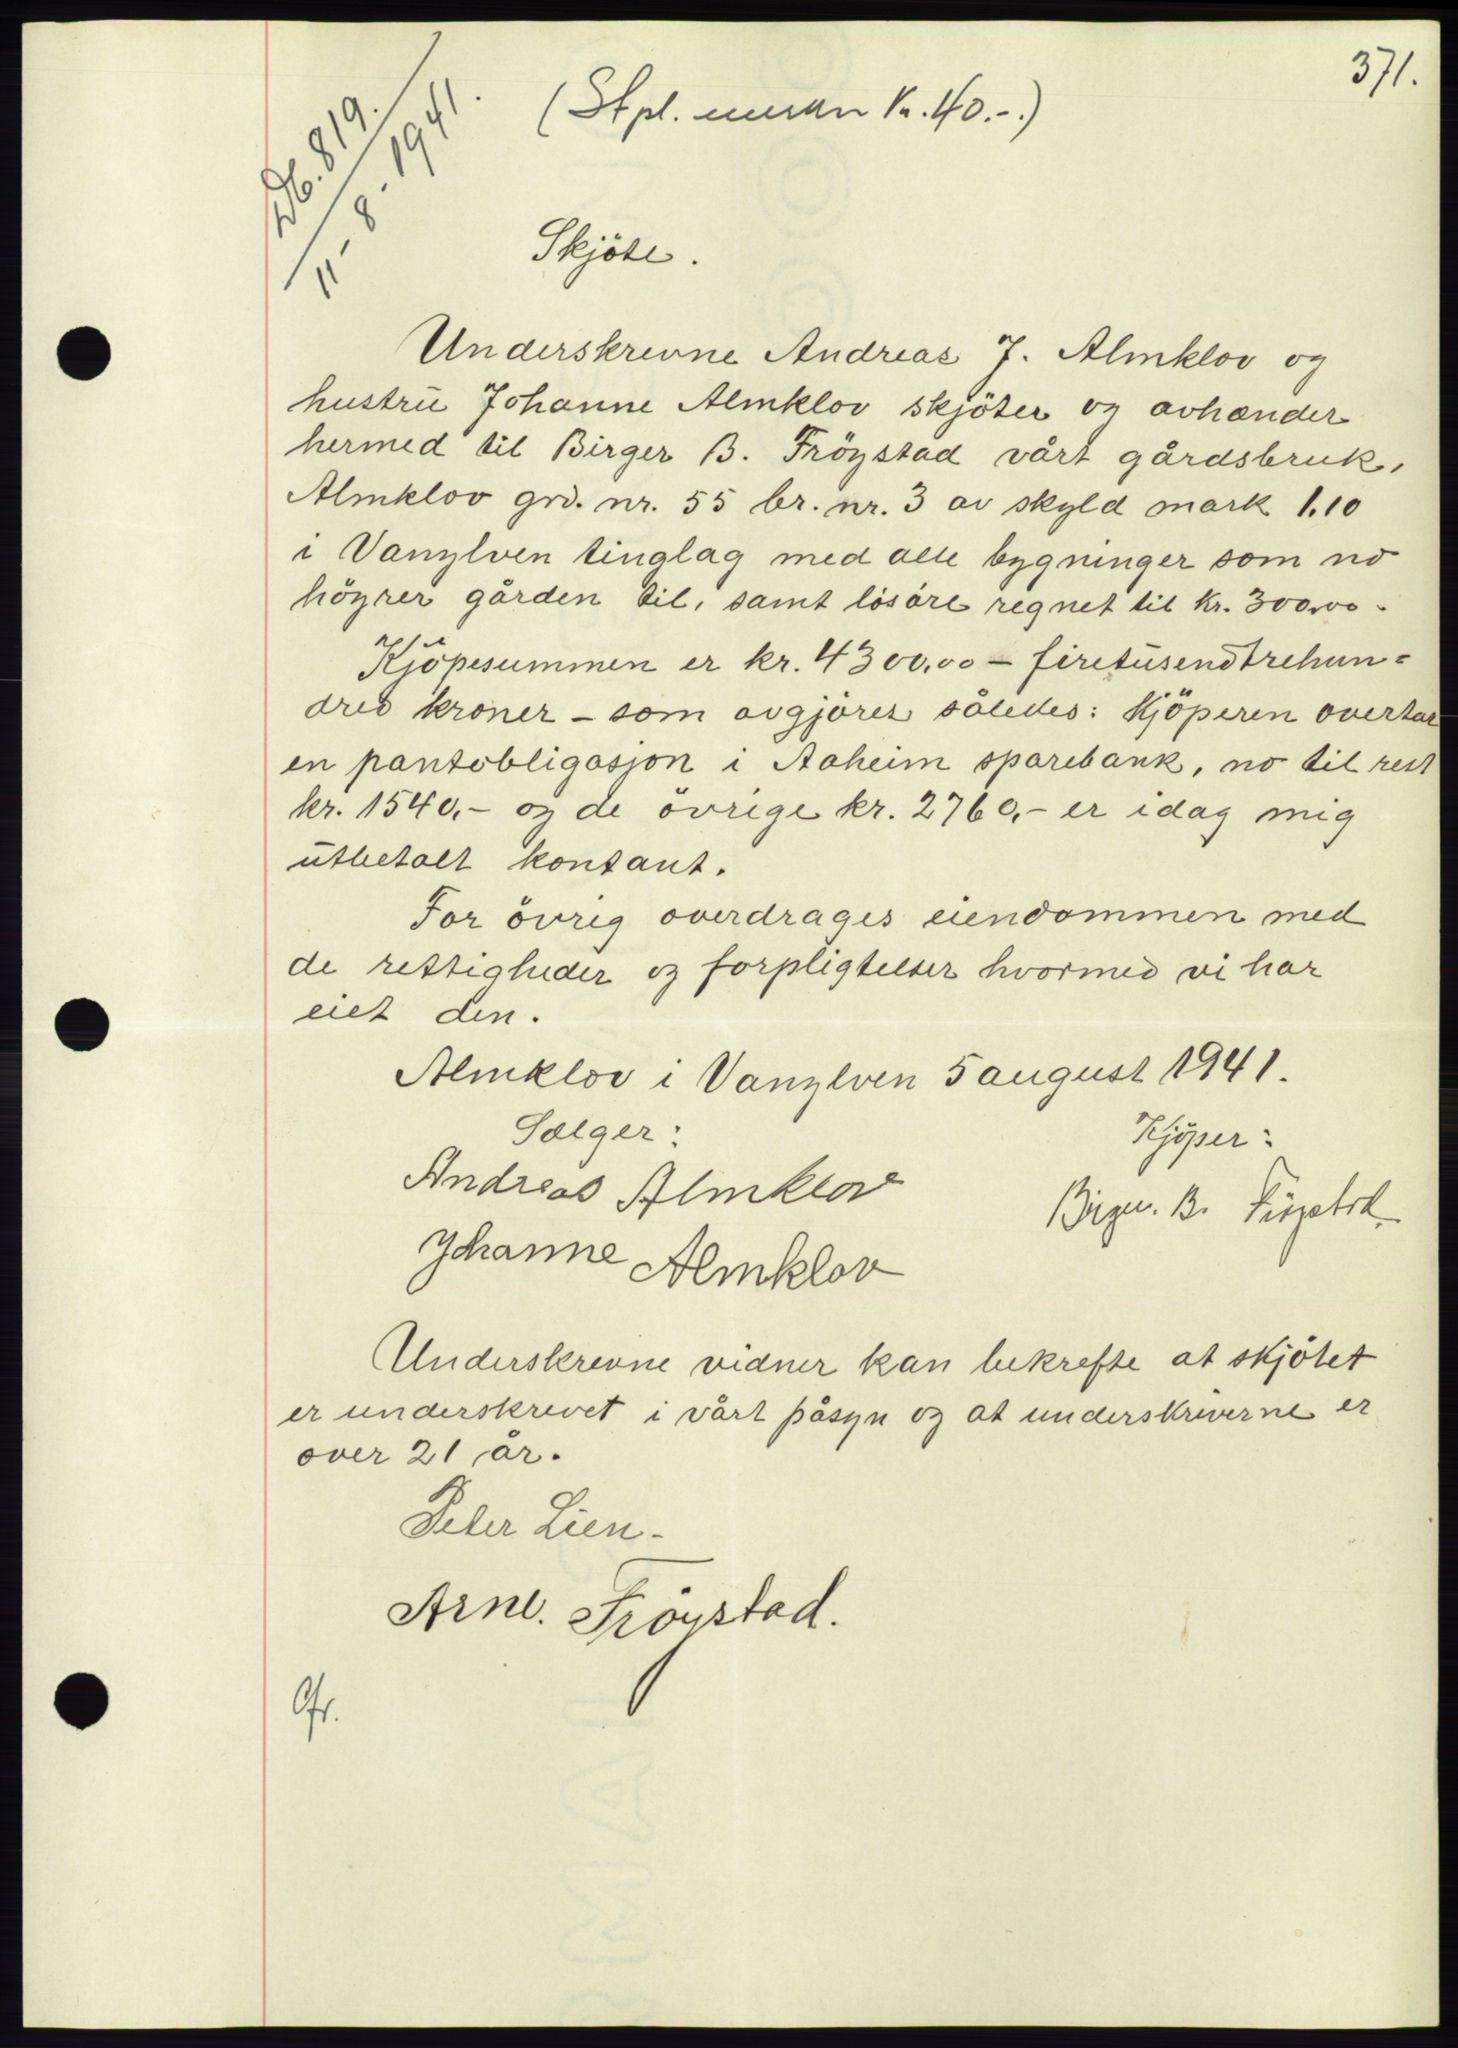 371.
Db. 819.
11-8-1941.
(Stpl. merker Kr. 40.-.)
Skjöte.
Underskrevne Andreas J. Almklov og
hustru Johanne Almklov skjöter og avhænder
hermed til Birger B. Fröystad vårt gårdsbruk,
Almklov grd. nr. 55 br. nr. 3 av skyld mark 1.10
i Vanylven tinglag med alle bygninger som no
höyrer gården til, samt lösöre regnet til kr. 300,00.
Kjöpesummen er kr. 4300,00 - firetusendtrehun-
dred kroner - som avgjöres således: Kjöperen overtar
en pantobligasjon i Aaheim sparebank, no til rest
kr. 1540,- og de övrige kr. 2760,- er idag mig
utbetalt kontant.
For övrig overdrages eiendommen med
de rettigheder og forpligtelser hvormed vi har
eiet den.
Almklov i Vanylven 5 august 1941.
Sælger: Kjöper:
Andreas Almklov
Birger. B. Fröystad.
Johanne Almklov
Underskrevne vidner kan bekrefte at skjötet
er underskrevet i vårt påsyn og at underskriverne er
over 21 år.
Peter Lien-
Arne. Fröystad.